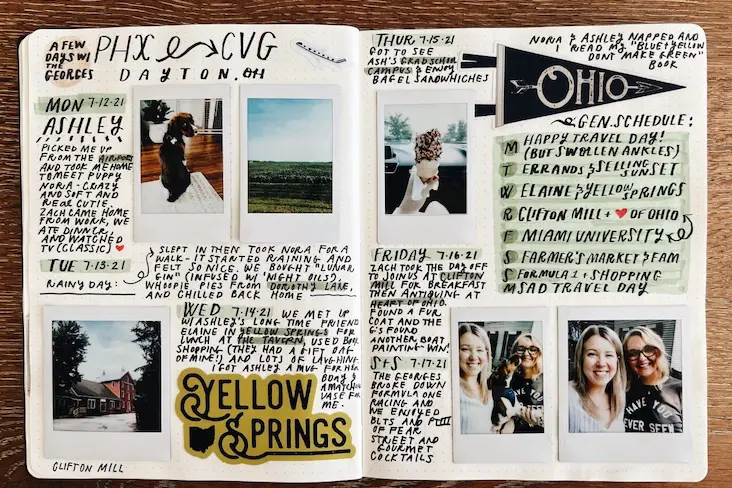 A FEW
DAYS W/
THE
GEORGES
PHX CVG
DAYTON, OH
MON 7-12-21
ASHLEY
PICKED ME UP
FROM THE AIRPORT
AND TOOK ME HOME
TO MEET PUPPY
NORIA - CRAZY
AND SOFT AND
REAL CUTIE.
ZACH CAME HOME
FROM WORK, WE
ATE DINNER,
AND WATCHED
TV (CLASSIC) ♥
TUE 7-13-21
RAINY DAY:
SLEPT IN THEN TOOK NORA FOR A
WALK - IT STARTED RAINING AND
FELT SO NICE. WE BOUGHT "LUNAR
GIN" (INFUSED W/ "NIGHT OILS),
WHOOPIE PIES FROM DOROTHY LANE,
AND CHILLED BACK HOME
WED 7-14-21 WE MET UP
W/ASHLEY'S LONG TIME FRIEND
ELAINE IN YELLOW SPRINGS FOR
LUNCH AT THE TAVERN, USED BOOK
SHOPPING (THEY HAD A GIFT BAG
OF MINE!) AND LOTS OF LAUGHING.
I GOT ASHLEY A MUG FOR HER
BDAY &
A MATCHING
VASE FOR
ME.
YELLOW
SPRINGS
CLIFTON MILL
THUR 7-15-21
GOT TO SEE
ASH'S GRAD SCHOOL
CAMPUS & ENJOY
BAGEL SANDWHICHES
NORIA & ASHLEY NAPPED AND
I READ MY "BLUE & YELLOW
DON'T MAKE GREEN"
BOOK
OHIO
GEN. SCHEDULE:
M HAPPY TRAVEL DAY!
(BUT SWOLLEN ANKLES)
T ERRANDS & SELLING
SUNSET
W ELAINE & YELLOW SPRINGS
R CLIFTON MILL + ♥ OF OHIO
F MIAMI UNIVERSITY
S FARMER'S MARKET & FAM
S FORMULA 1 + SHOPPING
M SAD TRAVEL DAY
FRIDAY 7-16-21
ZACH TOOK THE DAY OFF
TO JOIN US AT CLIFTON
MILL FOR BREAKFAST
THEN ANTIQUING AT
HEART OF OHIO.
FOUND A FUR
COAT AND THE
G'S FOUND
ANOTHER BOAT
PAINTING-WIN!
S+S 7-17-21
THE GEORGES
BROKE DOWN
FORMULA ONE
RACING AND
WE ENJOYED
BLTS AND
OF FEAR
STREET AND
GOURMET
COCKTAILS
HAVE YOU
EVER SEEN